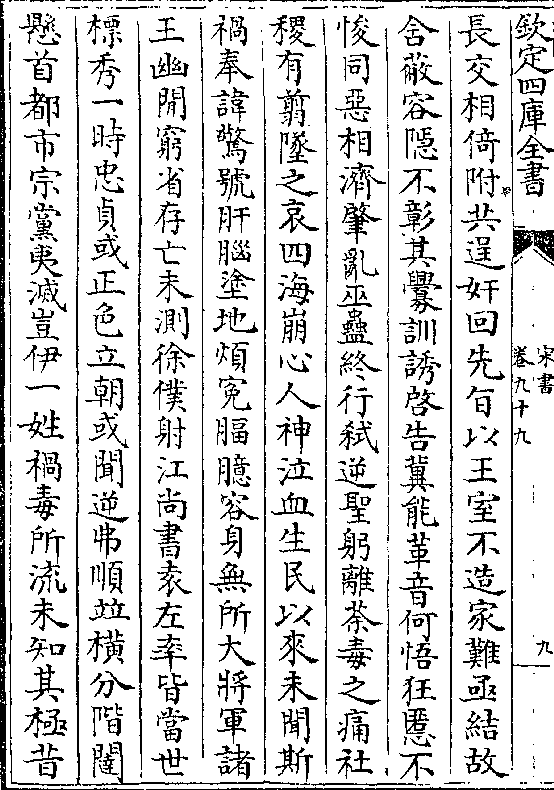 欽定四庫全書
宋書
卷九十九
九
長交相倚附共逞奸回先旨以王室不造家難亟結故
含蔽容隱不彰其釁訓誘啓告冀能革音何悟狂慝不
悛同惡相濟肇亂巫蠱終行弑逆聖躬離荼毒之痛社
稷有翦墜之哀四海崩心人神泣血生民以來未聞斯
禍奉諱驚號肝腦塗地煩寃腷臆容身無所大將軍諸
王幽閒窮省存亡未測徐僕射江尚書袁左率皆當世
標秀一時忠貞或正色立朝或聞逆弗順竝横分階闥
懸首都市宗黨夷滅豈伊一姓禍毒所流未知其極昔